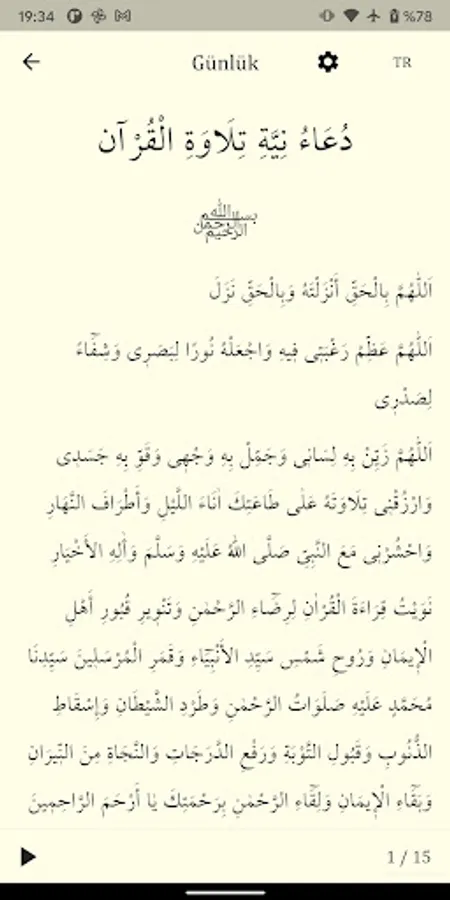 19:34
%78
Günlük
TR
دُعَاءُ نِيَّةِ تِلَاوَةِ الْقُرْآن
﷽
اَللّٰهُمَّ بِالْحَقِّ أَنْزَلْتَهُ وَبِالْحَقِّ نَزَلَ
اَللّٰهُمَّ عَظِّمْ رَغْبَتِى فِيهِ وَاجْعَلْهُ نُورًا لِبَصَرِى وَشِفَٓاءً
لِصَدْرِى
اَللّٰهُمَّ زَيِّنْ بِهِ لِسَانِى وَجَمِّلْ بِهِ وَجْهِى وَقَوِّ بِهِ جَسَدِى
وَارْزُقْنِى تِلَاوَتَهُ عَلٰى طَاعَتِكَ اٰنَاءَ اللَّيْلِ وَأَطْرَافَ النَّهَارِ
وَاحْشُرْنِى مَعَ النَّبِيِّ صَلَّى اللهُ عَلَيْهِ وَسَلَّمَ وَاٰلِهِ الأَخْيَارِ
نَوَيْتُ قِرَاءَةَ الْقُرْاٰنِ لِرِضَٓاءِ الرَّحْمٰنِ وَتَنْوِيرِ قُبُورِ أَهْلِ
الْإِيمَانِ وَرُوحِ شَمْسِ سَيِّدِ الأَنْبِيَٓاءِ وَقَمَرِ الْمُرْسَلِينَ سَيِّدِنَا
مُحَمَّدٍ عَلَيْهِ صَلَوَاتُ الرَّحْمٰنِ وَطَرْدِ الشَّيْطَانِ وَإِسْقَاطِ
الذُّنُوبِ وَقَبُولِ التَّوْبَةِ وَرَفْعِ الدَّرَجَاتِ وَالنَّجَاةِ مِنَ النِّيرَانِ
وَبَقَٓاءِ الْإِيمَانِ وَلِقَٓاءِ الرَّحْمٰنِ بِرَحْمَتِكَ يَا أَرْحَمَ الرَّاحِمِينَ
1 / 15